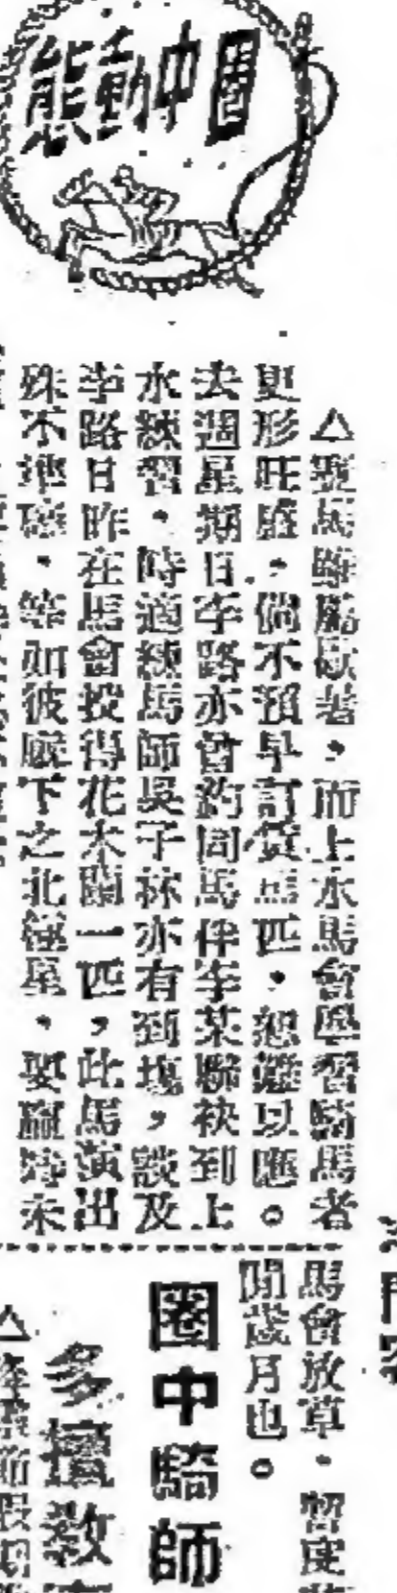 圈中動態
△賽馬雖屬歇暑,而上水馬會學習騎馬者
更形旺盛,倘不預早訂賃馬匹,恕難以應。
去週星期日李路亦曾約同馬伴李某聯袂到上
水練習,時適練馬師吳子林亦有到塲,談及
李路日昨在馬會投得花木蘭一匹,此馬演出
殊不地,等如彼廐下之北極星,要贏未
馬會放草,暫度
閒歲月也。
圈中騎師
多擅教
△節假期